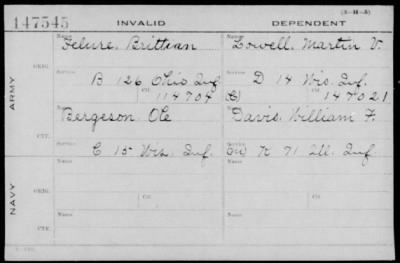 (3-H-5)
147545 INVALID DEPENDENT
Name Name
Delure, Brittian Lowell, Martin V.
ARMY
ORIG.
Service Service
B 126 Ohio Inf. D 14 Wis. Inf.
Ctf. Ctf.
114704 147021
Name Name
Bergeson, Ole Davis, William F.
CTF.
Service Service
C 15 Wis. Inf. K 71 Ill. Inf.
NAVY
Name Ctf. Name Ctf.
ORIG.
Name Name
CTF.